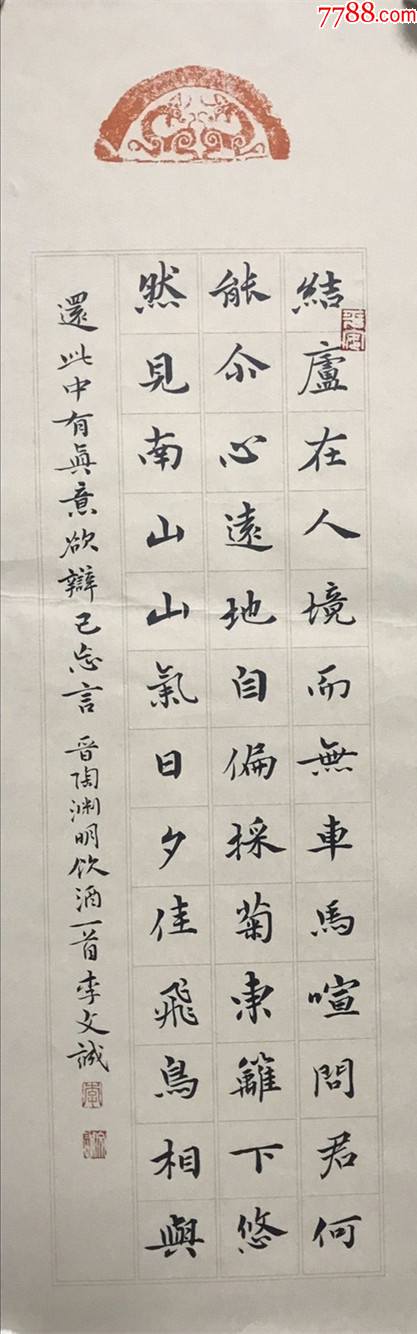 7788.com
結廬在人境而無車馬喧問君何
能尒心遠地自偏採菊東籬下悠
然見南山山氣日夕佳飛鳥相與
還此中有真意欲辯已忘言 晋陶渊明饮酒一首李文誠